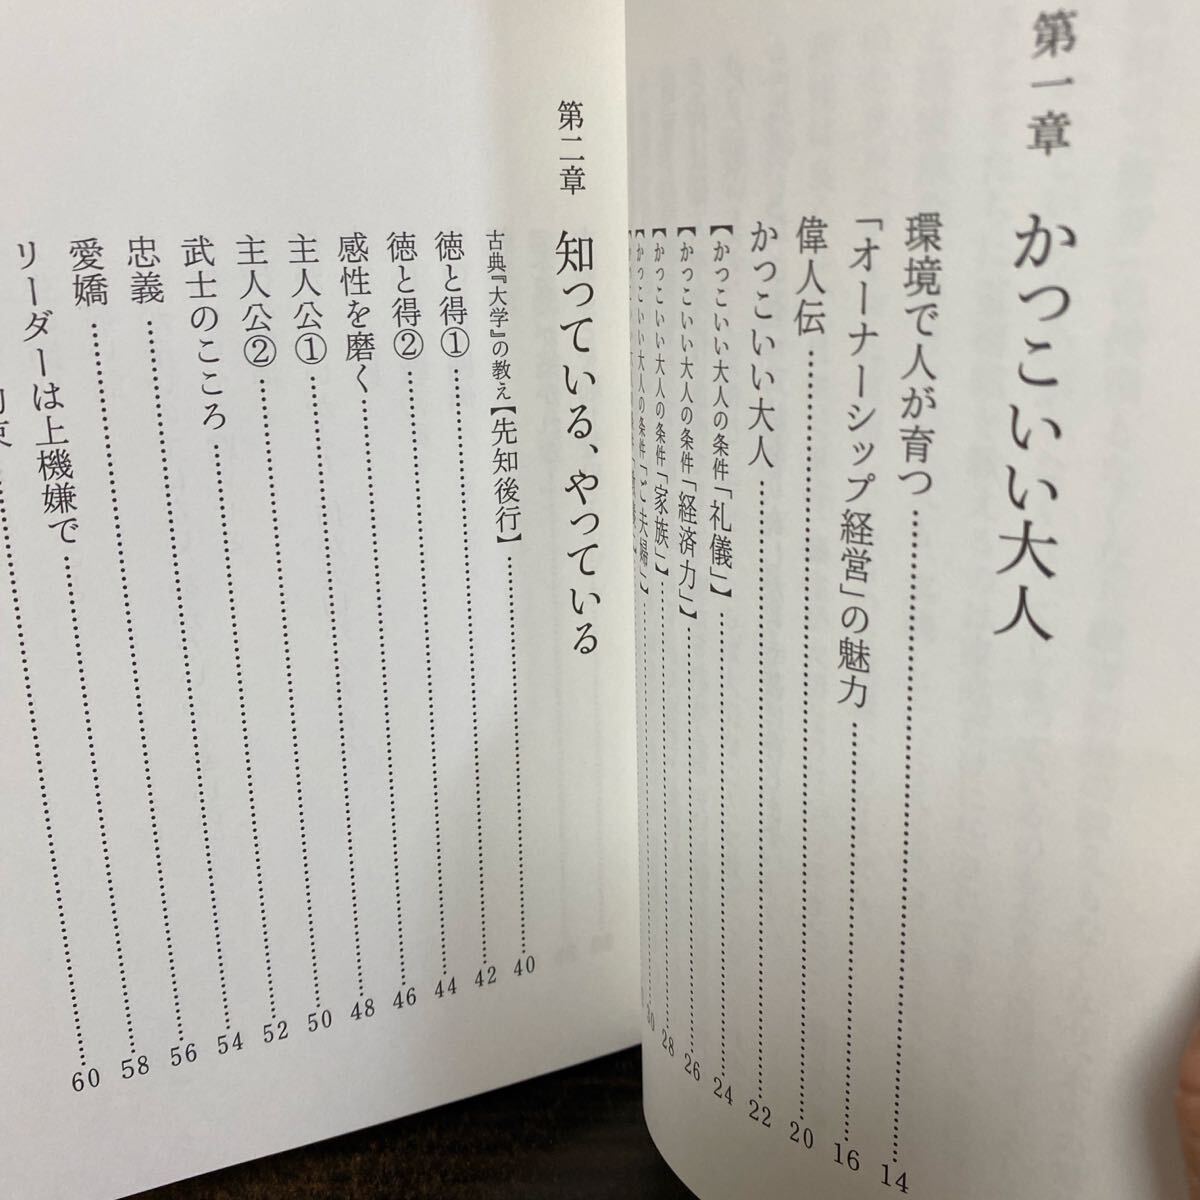 第一章 かっこいい大人
環境で人が育つ……………14
「オーナーシップ経営」の魅力……………16
偉人伝……………20
かっこいい大人……………22
【かっこいい大人の条件「礼儀」】……………24
【かっこいい大人の条件「経済力」】……………26
【かっこいい大人の条件「家族」】……………28
【かっこいい大人の条件「ご夫婦」】……………30
第二章 知っている、やっている
古典『大学』の教え【先知後行】……………40
徳と得①……………42
徳と得②……………44
感性を磨く……………46
主人公①……………48
主人公②……………50
武士のこころ……………52
忠義……………54
愛嬌……………56
リーダーは上機嫌で……………58
60